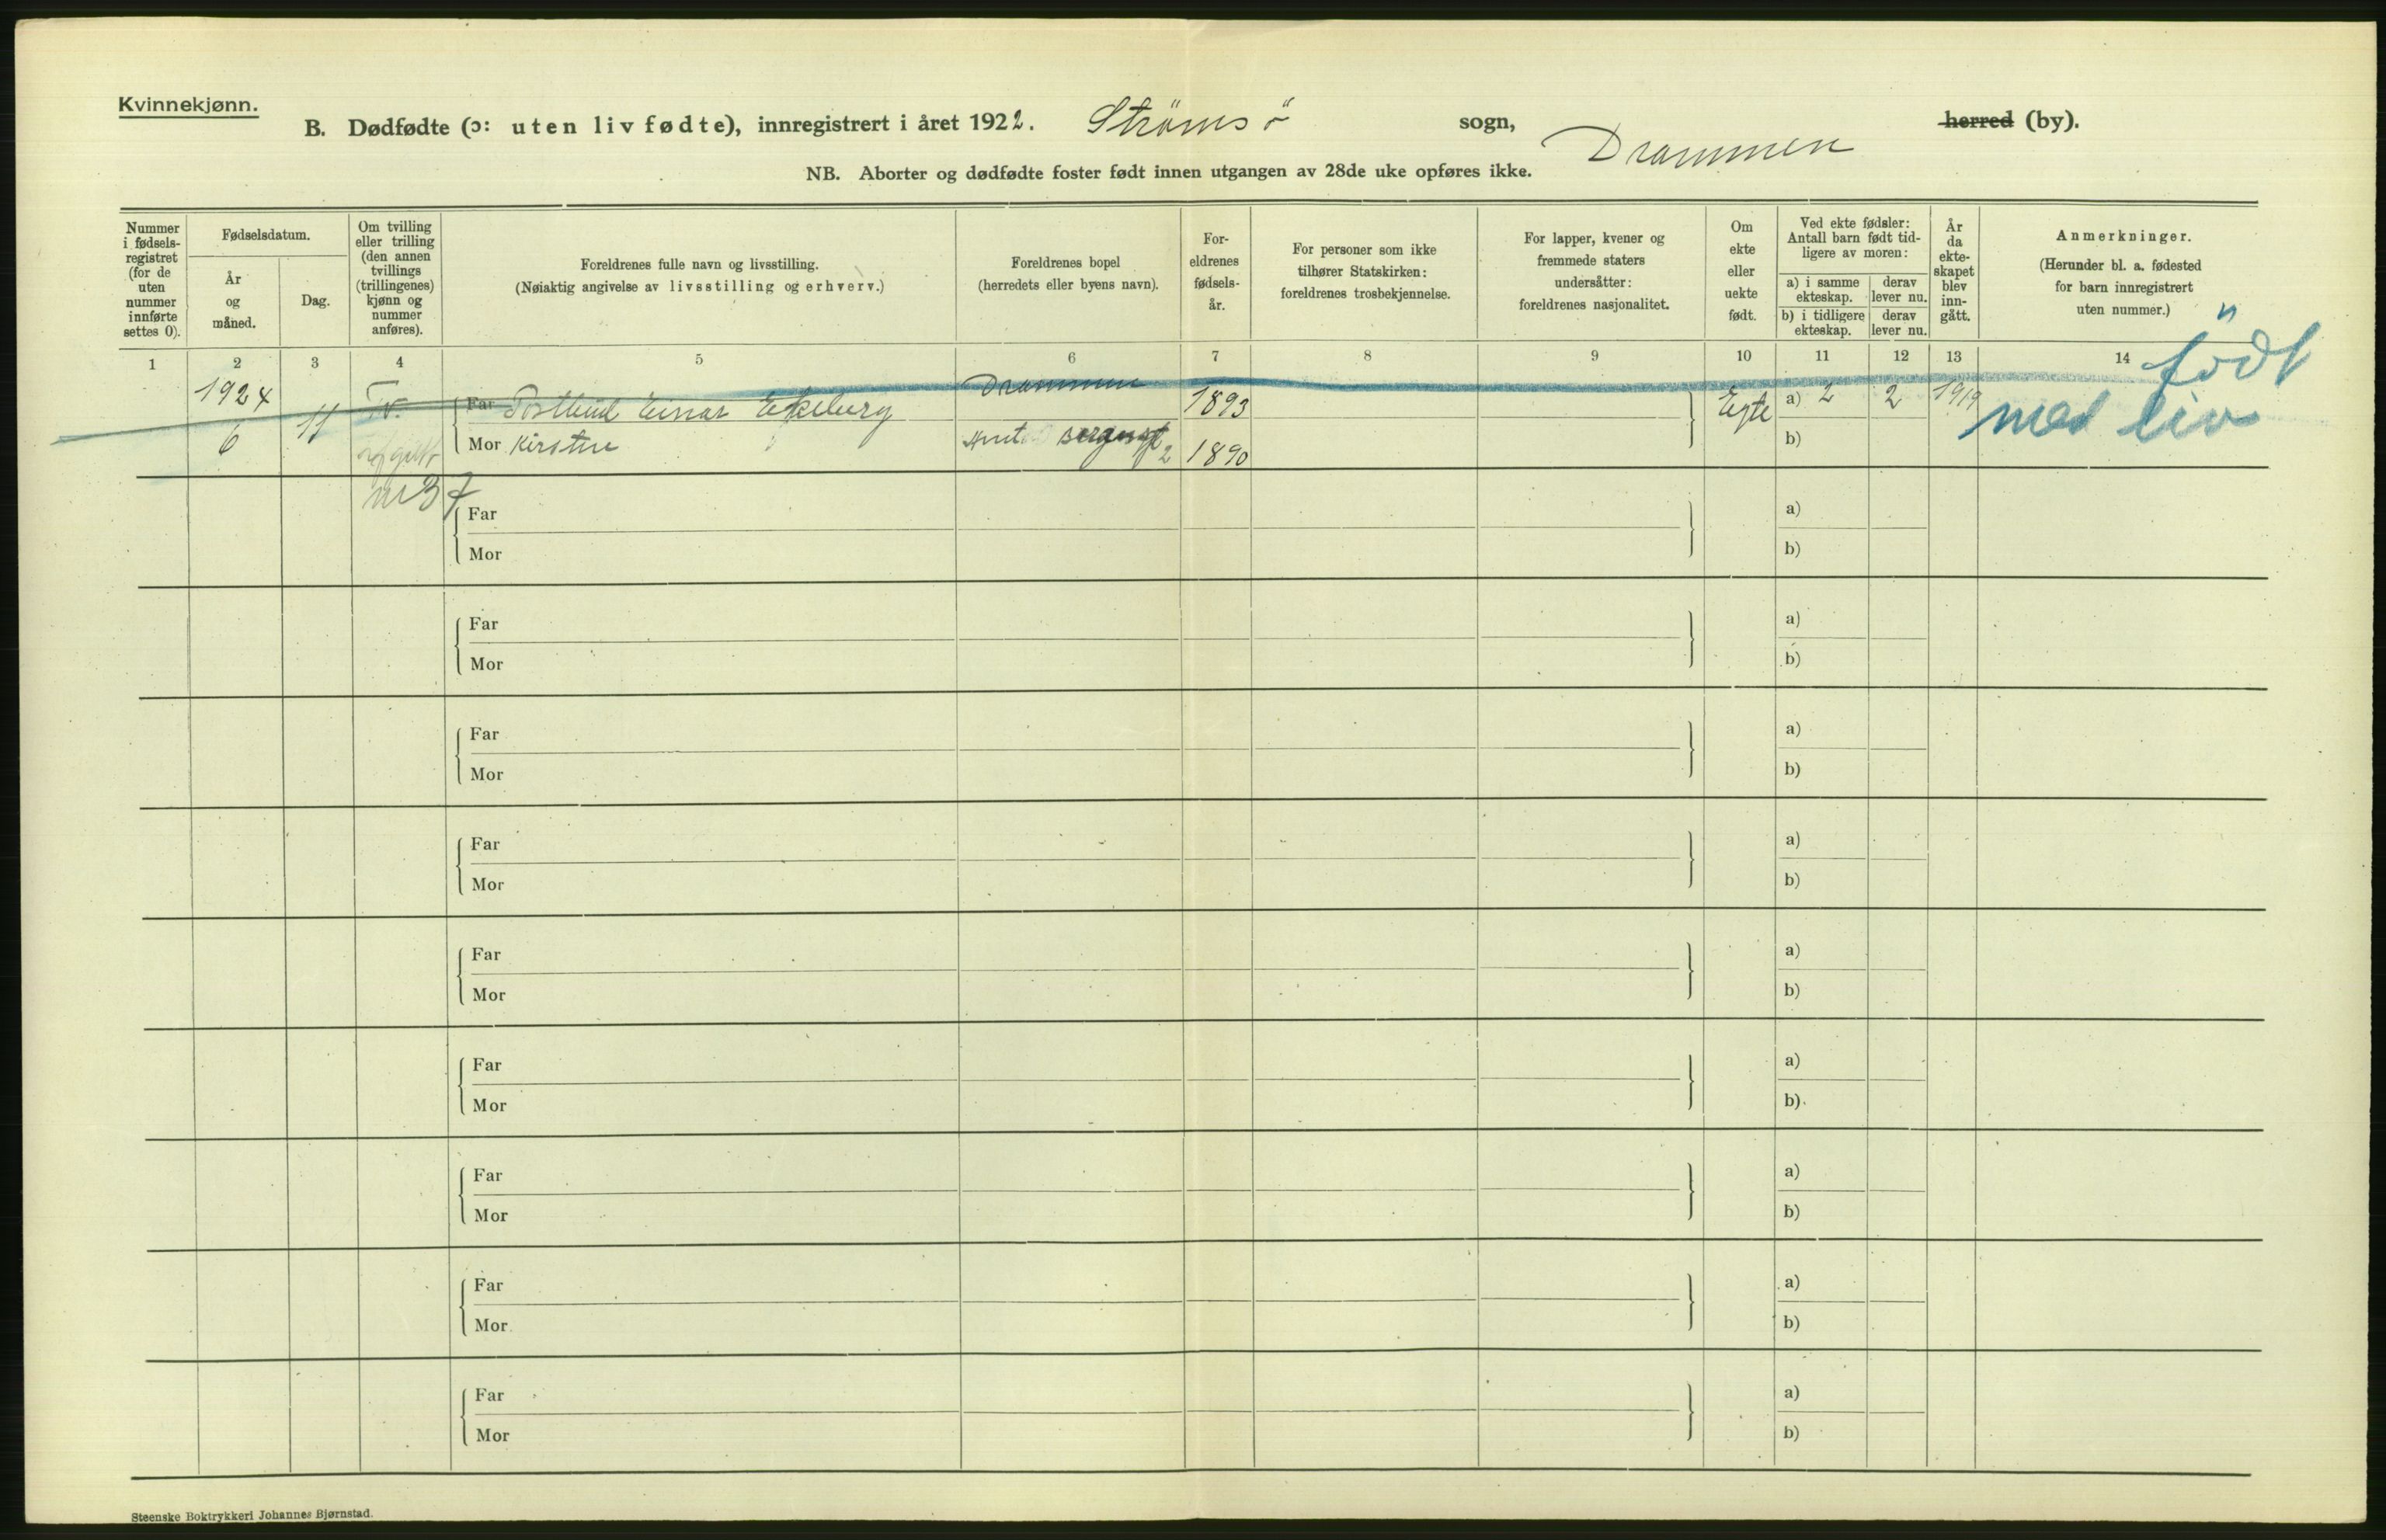 Kvinnekjønn.
B. Dødfødte (ɔ: uten liv fødte), innregistrert i året 1922. Strömsö sogn, Drammen herred (by).
NB. Aborter og dødfødte foster født innen utgangen av 28de uke opføres ikke.
Nummer i fødsels-registret (for de uten nummer innførte settes 0).
Fødselsdatum.
År og måned.
Dag.
Om tvilling eller trilling (den annen tvillings (trillingenes) kjønn og nummer anføres).
Foreldrenes fulle navn og livsstilling.
(Nøiaktig angivelse av livsstilling og erhverv.)
Foreldrenes bopel
(herredets eller byens navn).
For-eldrenes fødsels-år.
For personer som ikke tilhører Statskirken: foreldrenes trosbekjennelse.
For lapper, kvener og fremmede staters undersåtter: foreldrenes nasjonalitet.
Om ekte eller uekte født.
Ved ekte fødsler: Antall barn født tid-ligere av moren:
a) i samme ekteskap.
derav lever nu.
b) i tidligere ekteskap.
derav lever nu.
År da ekte-skapet blev inn-gått.
Anmerkninger.
(Herunder bl. a. fødested for barn innregistrert uten nummer.)
1 2 3 4 5 6 7 8 9 10 11 12 13 14
1924 Tv. Far Postbud Einar Ekeberg Drammen 1893 Egte a) 2 2 1919 födt
6 11 Mor Kirstine 2 1890 b) med liv
nr 37
Far a)
Mor b)
Far a)
Mor b)
Far a)
Mor b)
Far a)
Mor b)
Far a)
Mor b)
Far a)
Mor b)
Far a)
Mor b)
Far a)
Mor b)
Far a)
Mor b)
Steenske Boktrykkeri Johannes Bjørnstad.